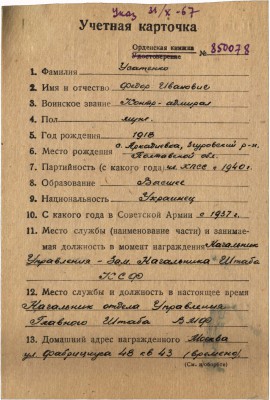 Указ 31/X-67
Учетная карточка
Орденская книжка
Удостоверение № 850078
1. Фамилия Усатенко
2. Имя и отчество Федор Иванович
3. Воинское звание Контр-адмирал
4. Пол муж.
5. Год рождения 1918
6. Место рождения с. Аркадиевка, Згуровский р-н
Полтавской обл.
7. Партийность (с какого года) чл. КПСС с 1940 г.
8. Образование Высшее
9. Национальность Украинец
10. С какого года в Советской Армии с 1937 г.
11. Место службы (наименование части) и занимае-
мая должность в момент награждения Начальник
Управления - Зам. Начальника Штаба
КСФ
12. Место службы и должность в настоящее время
Начальник отдела Управления
Главного Штаба ВМФ
13. Домашний адрес награжденного Москва
ул. Фабрициуса 48 кв 43 (времено)
(См. на обороте)